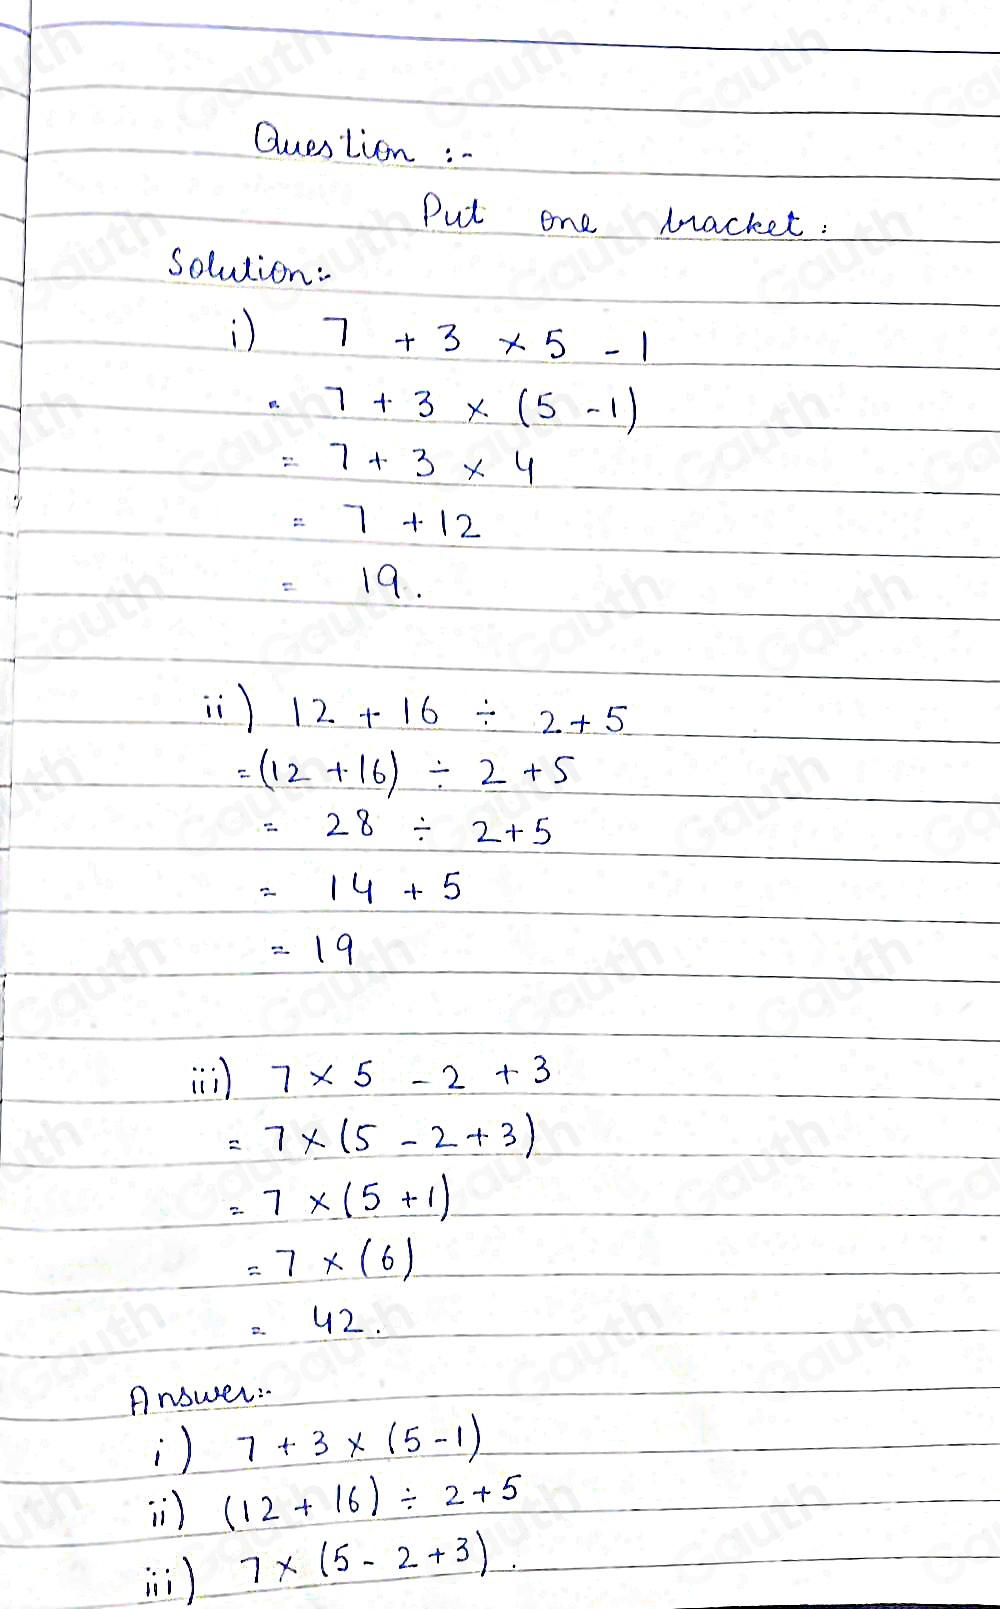 Question :-
Put one bracket :
Solution:-
i) 7 + 3 × 5 - 1
= 7 + 3 × (5 - 1)
= 7 + 3 × 4
= 7 + 12
= 19.
ii) 12 + 16 ÷ 2 + 5
= (12 + 16) ÷ 2 + 5
= 28 ÷ 2 + 5
= 14 + 5
= 19
iii) 7 × 5 - 2 + 3
= 7 × (5 - 2 + 3)
= 7 × (5 + 1)
= 7 × (6)
= 42.
Answer:-
i) 7 + 3 × (5 - 1)
ii) (12 + 16) ÷ 2 + 5
iii) 7 × (5 - 2 + 3).